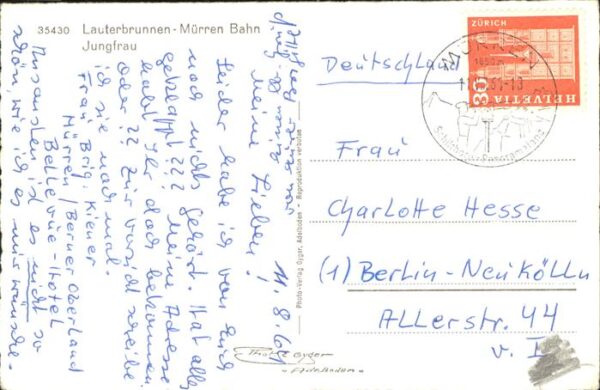 35430 Lauterbrunnen - Mürren Bahn
Jungfrau
11.8.64
Meine Lieben!
Leider habe ich von Euch
noch nichts gehört. Hat alles
geklappt??? Meine Adresse
habt Ihr doch bekommen
oder?? Zur Vorsicht schreibe
ich sie noch mal.
Frau Brig. Kiener
Mürren / Berner Oberland
Bellevue-Hotel
Ansonsten ist es nicht so
schön, wie ich es mir wünsche.
von Eurer
Photo-Verlag Gyger, Adelboden - Reproduktion verboten
Gyger
Adelboden
ZÜRICH
80
HELVETIA
MÜRREN
1650 m
Schilthorn-Panorama
Deutschland
Frau
Charlotte Hesse
(1) Berlin-Neukölln
Allerstr. 44
v. I